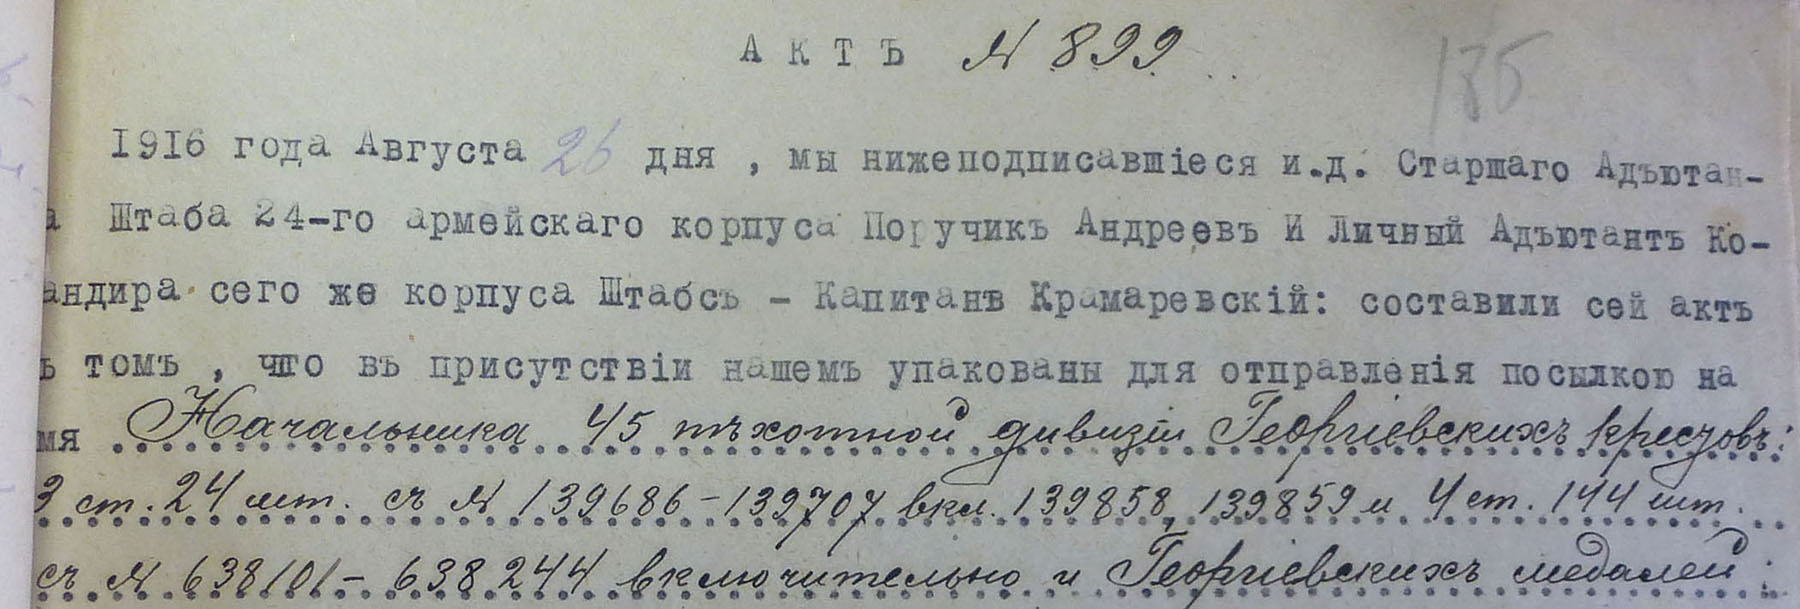 АКТЪ № 899
185
1916 года Августа 26 дня , мы нижеподписавшіеся и.д. Старшаго Адъютан-
а Штаба 24-го армейскаго корпуса Поручикъ Андреевъ И Личный Адъютантъ Ко-
андира сего же корпуса Штабсъ - Капитанъ Крамаревскій: составили сей актъ
ъ томъ , что въ присутствіи нашемъ упакованы для отправленія посылкою на
мя Начальника 45 пѣхотной дивизіи Георгіевскихъ крестовъ:
3 ст. 24 шт. съ № 139686-139707 вкл. 139858, 139859 и 4 ст. 144 шт.
съ № 638101-638244 включительно и Георгіевскихъ медалей: